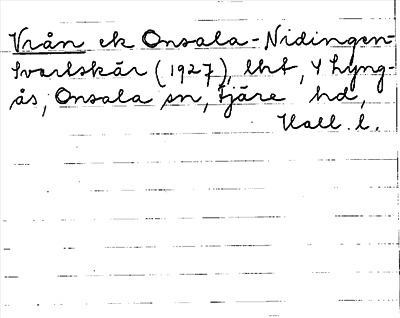 Vrån ek Onsala-Nidingen-
Svartskär (1927), lht, 4 Lyng-
ås, Onsala sn, Fjäre hd,
Hall. l.